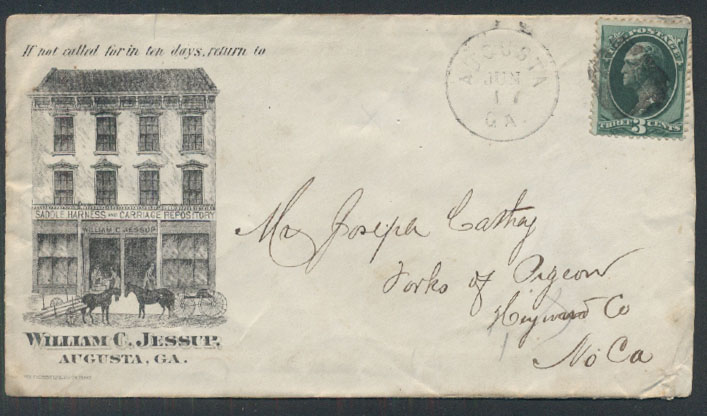 If not called for in ten days, return to
SADDLE HARNESS AND CARRIAGE REPOSITORY
WILLIAM C. JESSUP
WILLIAM C. JESSUP,
AUGUSTA, GA.
AUGUSTA
JUN
17
GA.
U.S. POSTAGE
THREE 3 CENTS
Mr Joseph Cathey
Forks of Pigeon
Haywood Co
No Ca